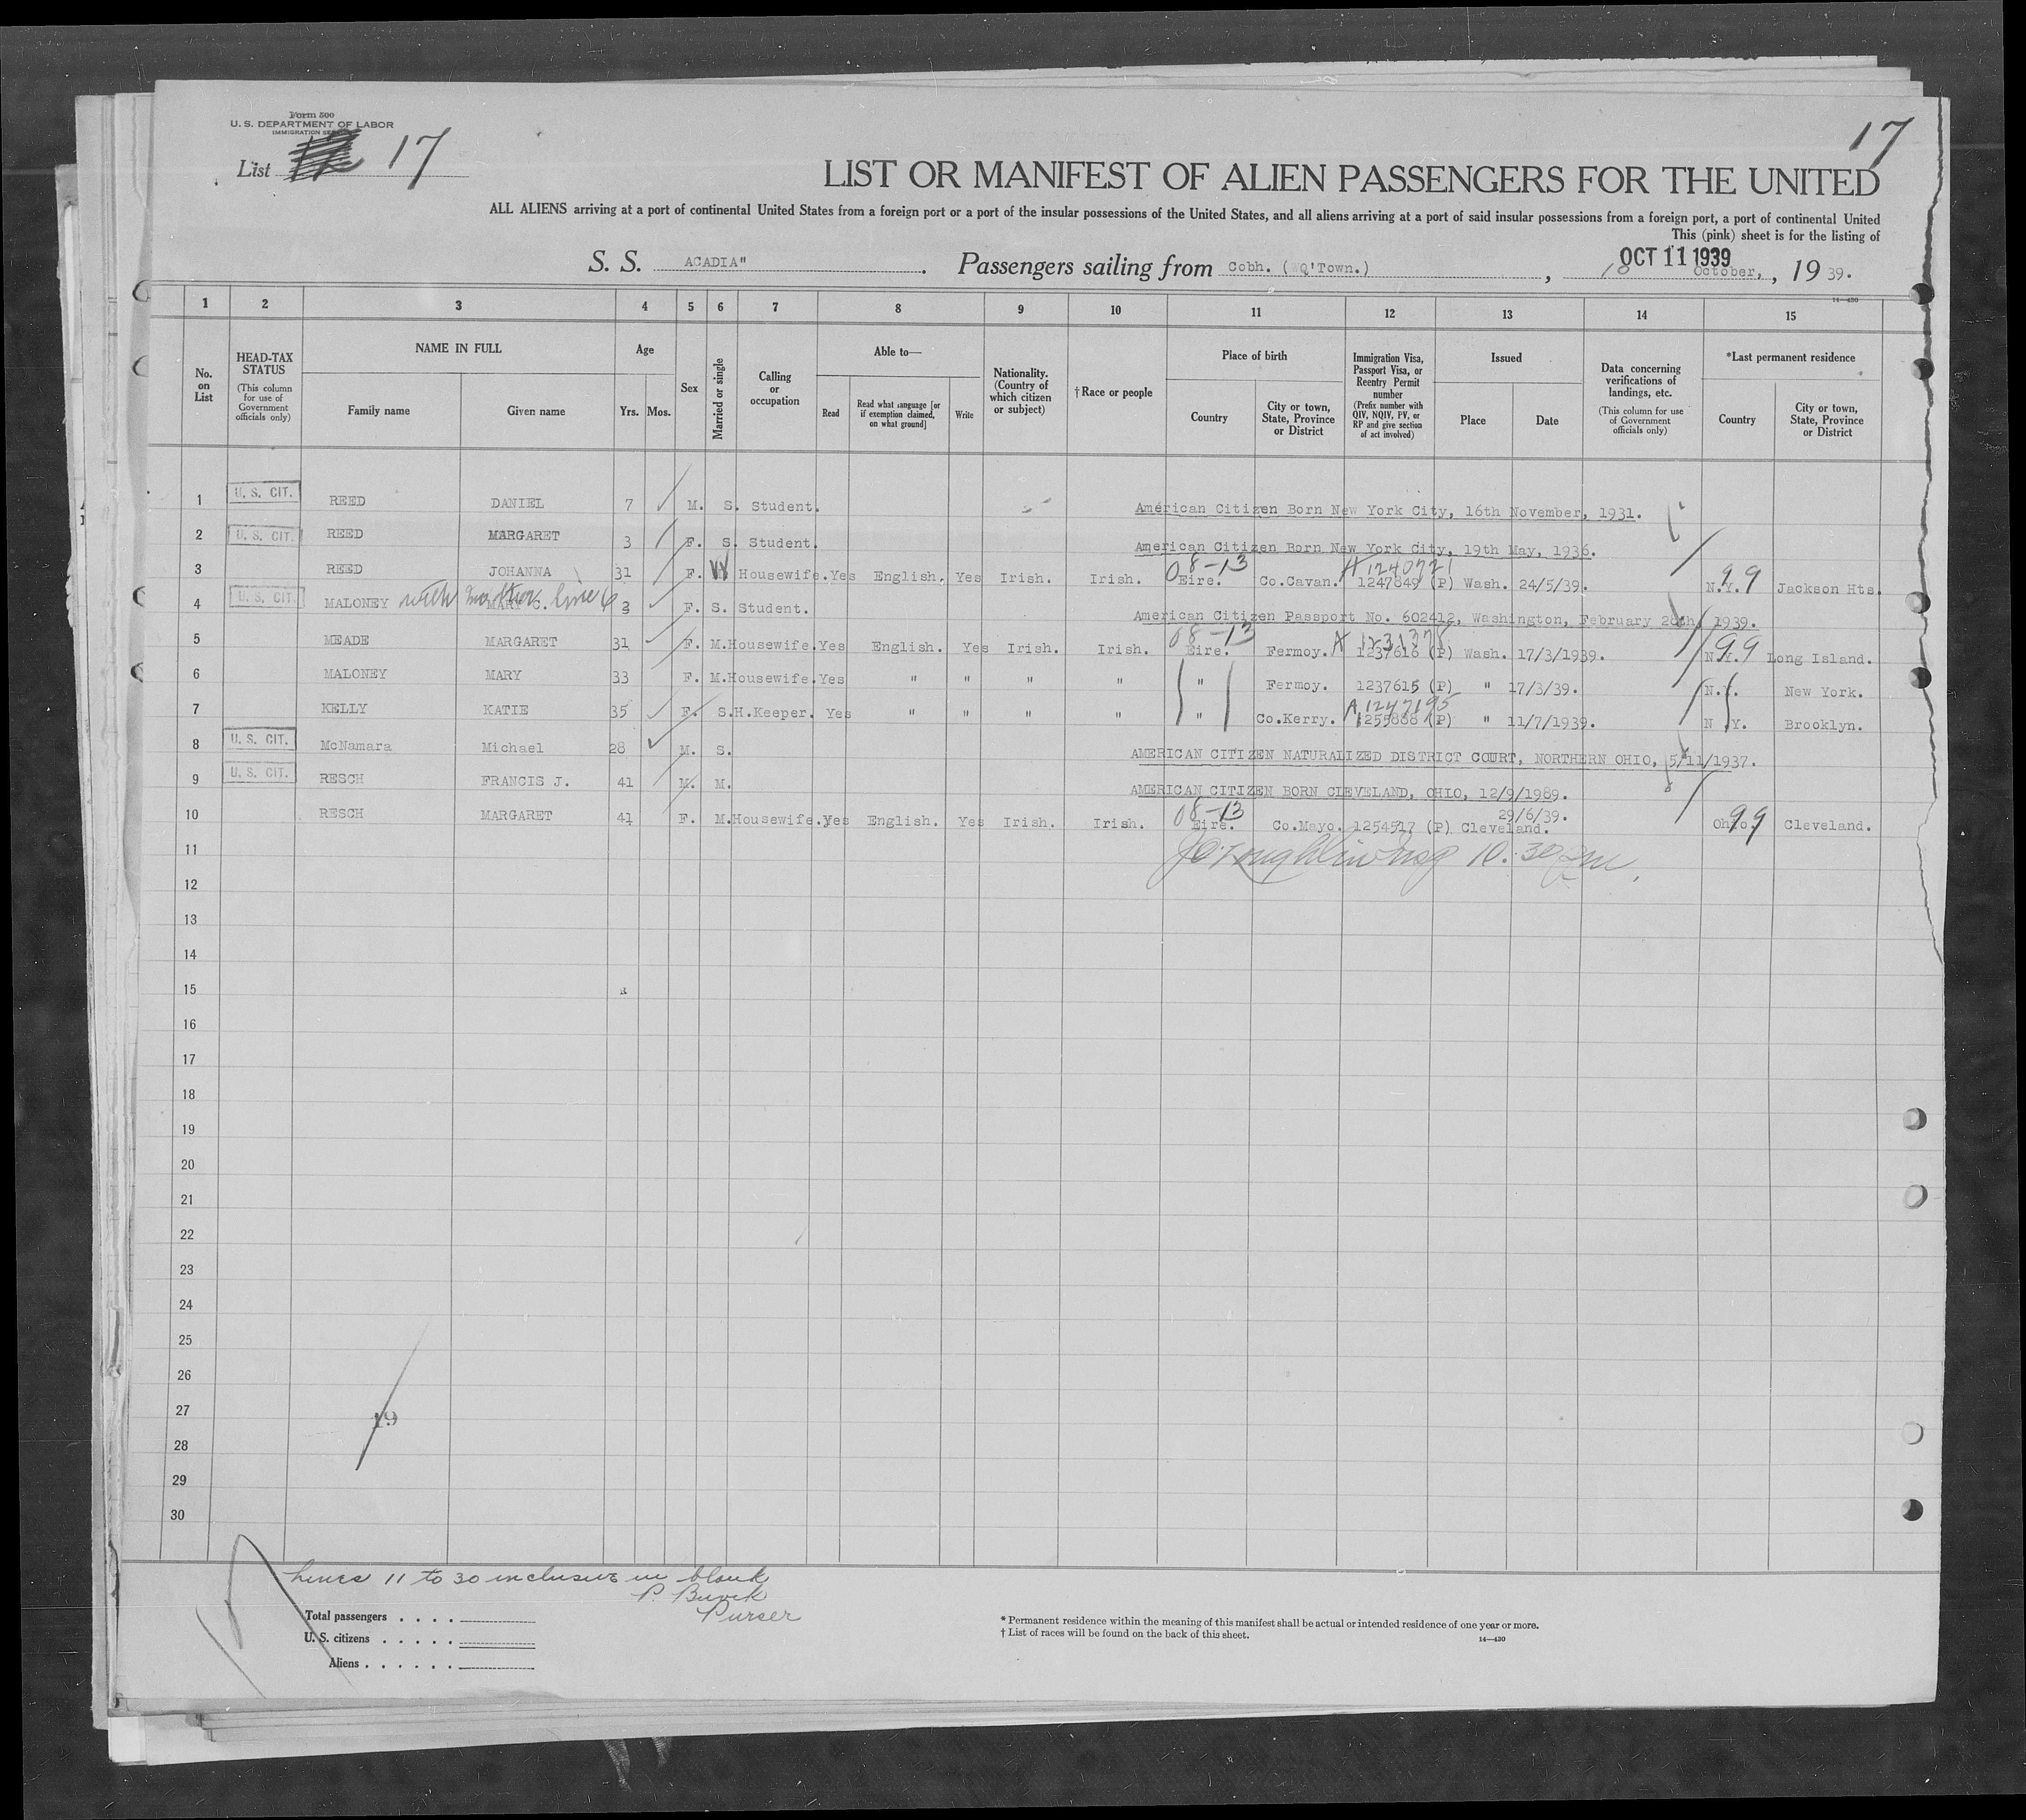 Form 500
U. S. DEPARTMENT OF LABOR
IMMIGRATION SERVICE
List 17
17
LIST OR MANIFEST OF ALIEN PASSENGERS FOR THE UNITED
ALL ALIENS arriving at a port of continental United States from a foreign port or a port of the insular possessions of the United States, and all aliens arriving at a port of said insular possessions from a foreign port, a port of continental United
This (pink) sheet is for the listing of
OCT 11 1939
S. S. ACADIA" . Passengers sailing from Cobh. (Q'Town.) , October, , 19 39.
14—430
1 2 3 4 5 6 7 8 9 10 11 12 13 14 15
No. on List
HEAD-TAX STATUS
(This column for use of Government officials only)
NAME IN FULL
Family name Given name
Age
Yrs. Mos.
Sex
Married or single
Calling or occupation
Able to—
Read
Read what language [or if exemption claimed, on what ground]
Write
Nationality. (Country of which citizen or subject)
† Race or people
Place of birth
Country
City or town, State, Province or District
Immigration Visa, Passport Visa, or Reentry Permit number
(Prefix number with QIV, NQIV, PV, or RP and give section of act involved)
Issued
Place Date
Data concerning verifications of landings, etc.
(This column for use of Government officials only)
*Last permanent residence
Country
City or town, State, Province or District
1 U. S. CIT. REED DANIEL 7 M. S. Student. American Citizen Born New York City, 16th November, 1931.
2 U. S. CIT. REED MARGARET 3 F. S. Student. American Citizen Born New York City, 19th May, 1936.
08-13 A 1240721 99
3 REED JOHANNA 31 F. W Housewife. Yes English. Yes Irish. Irish. Eire. Co.Cavan. 1247849 (P) Wash. 24/5/39. N.Y. Jackson Hts.
4 U. S. CIT. MALONEY with mother line 6 MARY C. 3 F. S. Student. American Citizen Passport No. 602412, Washington, February 28th, 1939.
08-13 99
5 MEADE MARGARET 31 F. M. Housewife. Yes English. Yes Irish. Irish. Eire. Fermoy. 1237616 (P) Wash. 17/3/1939. N.Y. Long Island.
6 MALONEY MARY 33 F. M. Housewife. Yes " " " " " Fermoy. 1237615 (P) " 17/3/39. N.Y. New York.
A 1247195
7 KELLY KATIE 35 F. S. H.Keeper. Yes " " " " " Co.Kerry. 1255888 (P) " 11/7/1939. N Y. Brooklyn.
8 U. S. CIT. McNamara Michael 28 M. S. AMERICAN CITIZEN NATURALIZED DISTRICT COURT, NORTHERN OHIO, 5/11/1937.
9 U. S. CIT. RESCH FRANCIS J. 41 M. M. AMERICAN CITIZEN BORN CLEVELAND, OHIO, 12/9/1989.
08-13 29/6/39. 99
10 RESCH MARGARET 41 F. M. Housewife. Yes English. Yes Irish. Irish. Eire. Co.Mayo. 1254517 (P) Cleveland. Ohio. Cleveland.
11 10:30
12
13
14
15
16
17
18
19
20
21
22
23
24
25
26
27 19
28
29
30
Lines 11 to 30 inclusive in blank
P.
Purser
Total passengers . . . .
U. S. citizens . . . . .
Aliens . . . . . .
* Permanent residence within the meaning of this manifest shall be actual or intended residence of one year or more.
† List of races will be found on the back of this sheet.
14—430